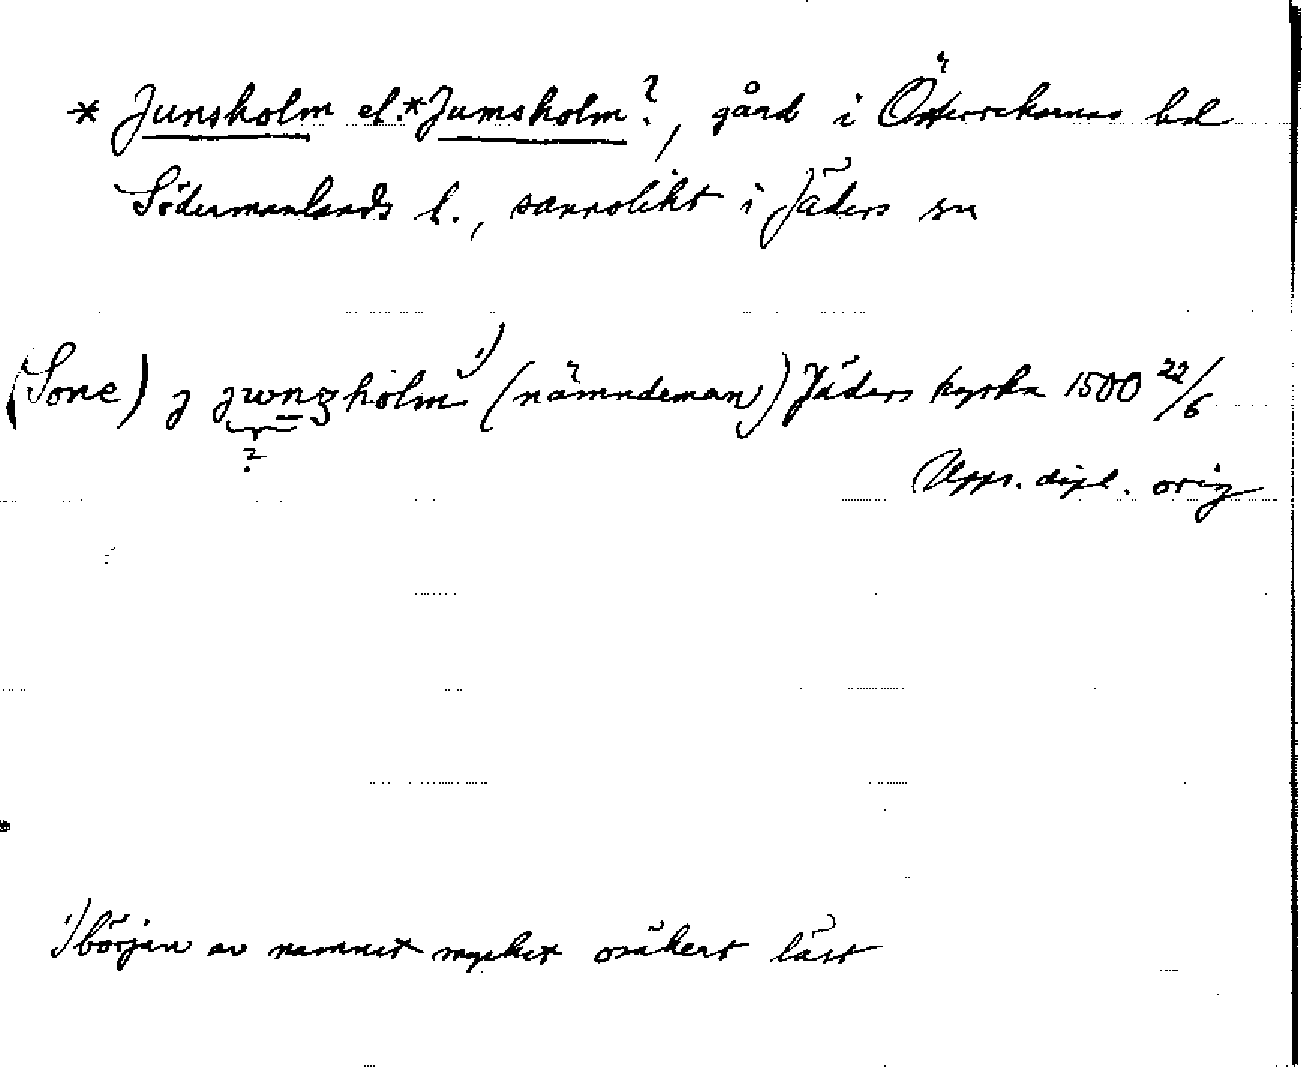 * Junsholm el. *Jumsholm?, gård i Österrekarnes hd
Södermanlands l., sannolikt i Jäders sn
(Sone) j jwngholm ¹) (nämndeman) Jäders kyrka 1500 22/6
?
Upps. dipl. orig
¹) början av namnet mycket osäkert läst